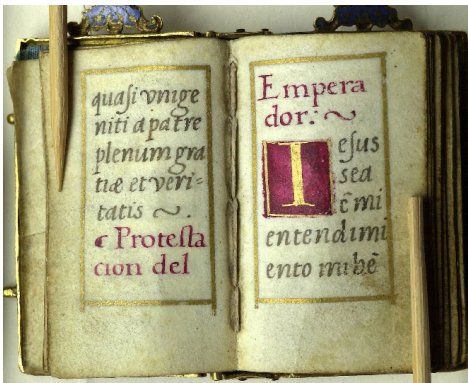 quasi vnige
niti a patre
plenum gra
tiæ et veri=
tatis ~ .
¶ Protesta
cion del
Empera
dor: ~
Iesus
sea
ẽ mi
entendimi
ento mi bẽ